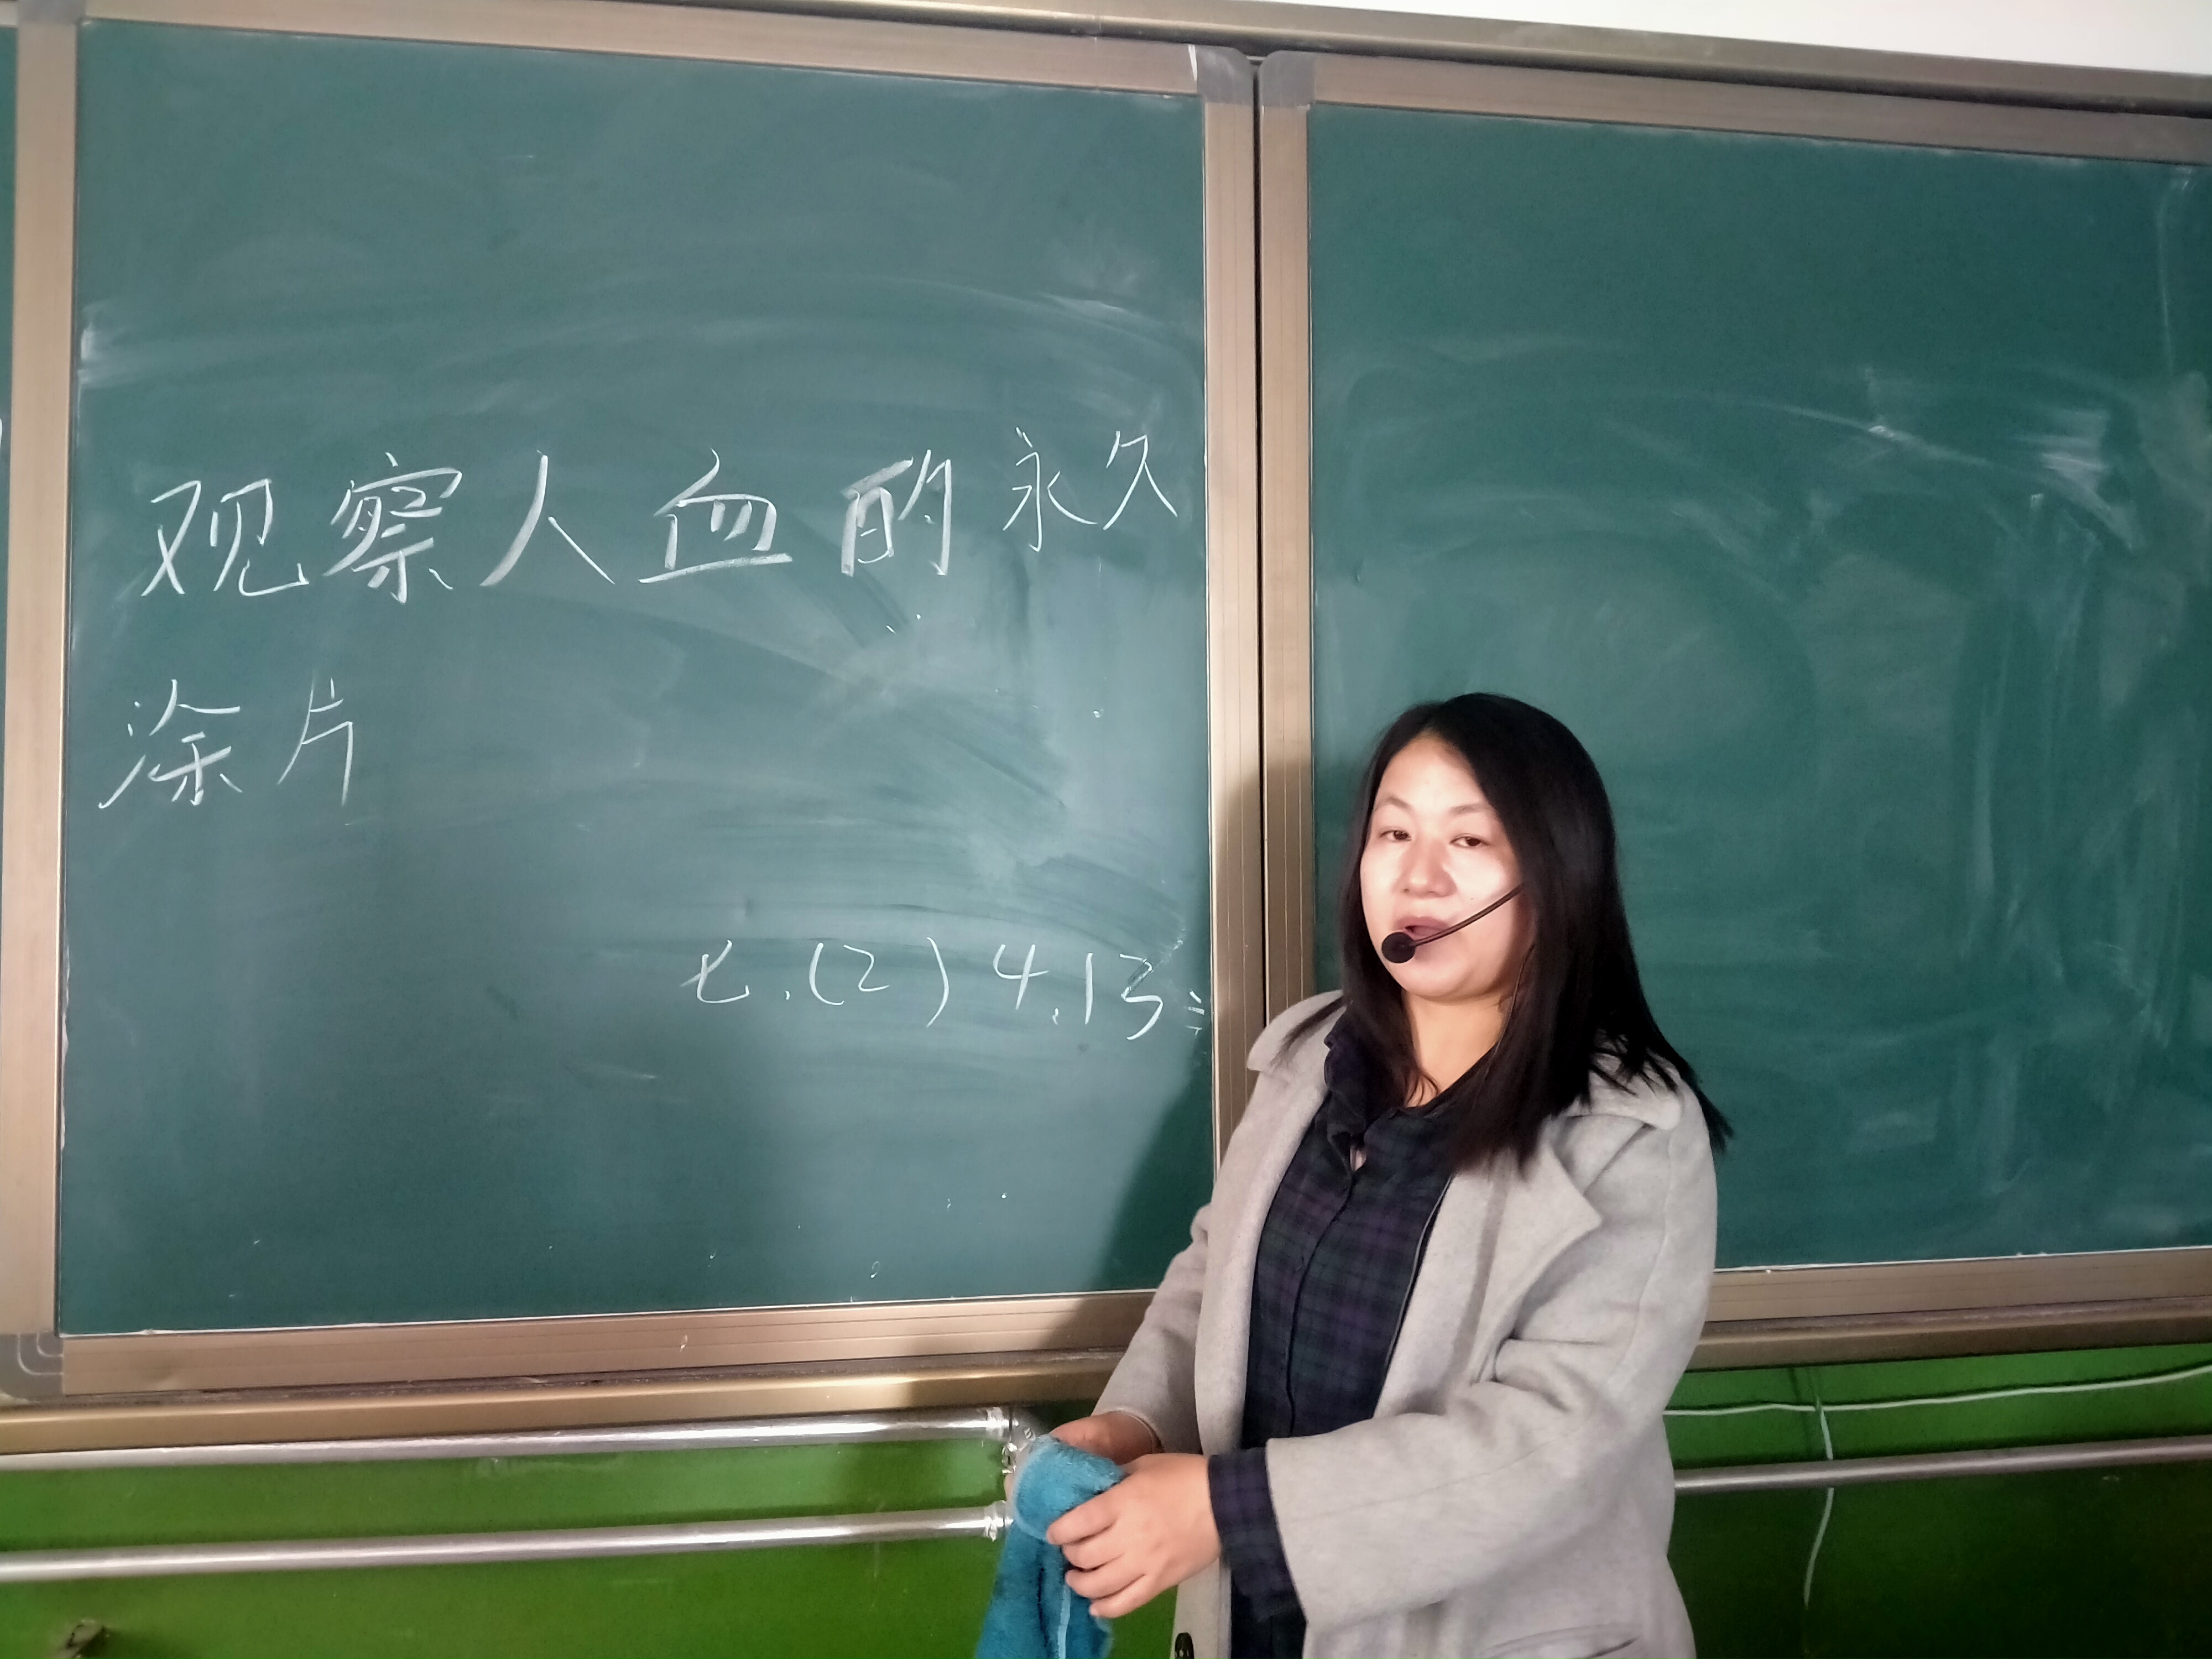 观察人血的永久
涂片
七.(2) 4.13 三